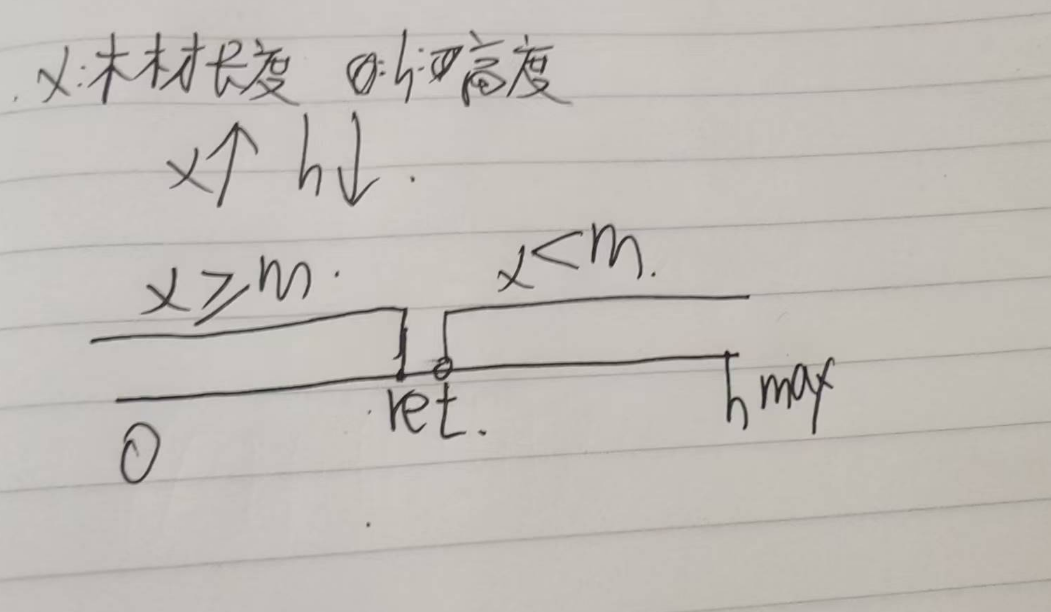 x:木材长度 h:高度
x↑ h↓.
x≥m. x<m.
ret. h max
0